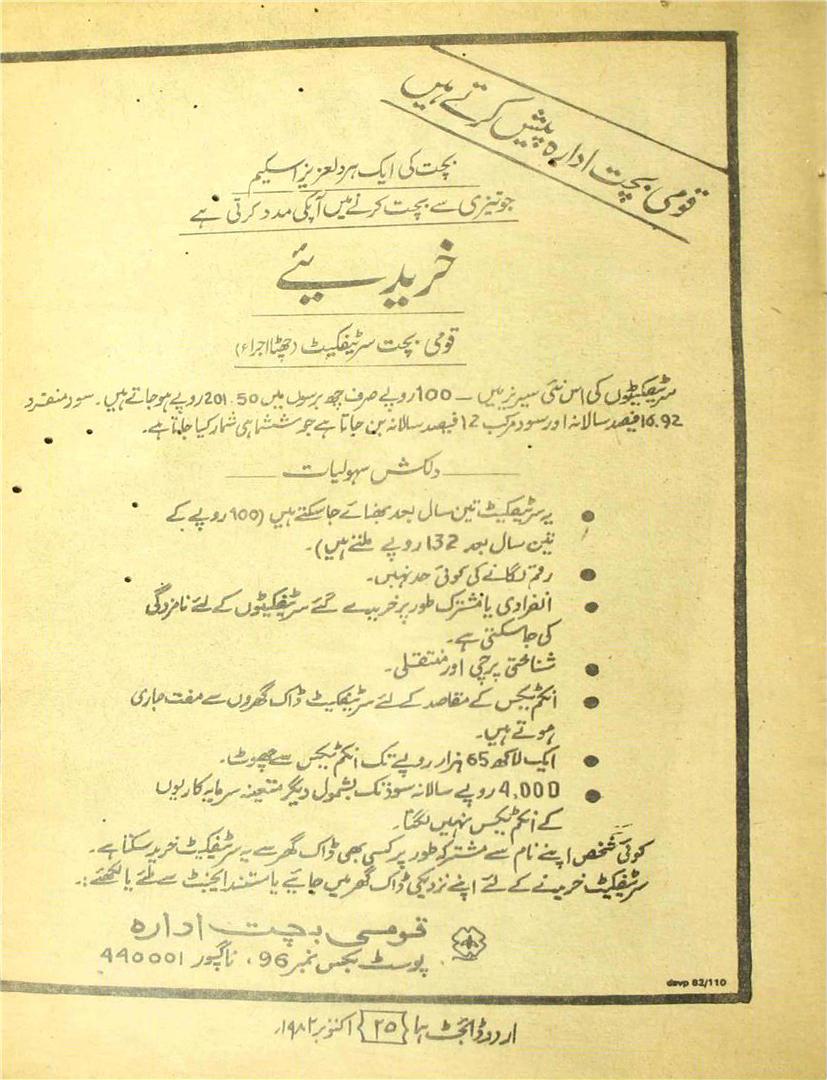 قومی بچت ادارہ پیش کرتے ہیں
بچت کی ایک ہردلعزیز اسکیم
جو تیزی سے بچت کرنے میں آپکی مدد کرتی ہے
خریدیئے
قومی بچت سرٹیفکیٹ (چھٹا اجراء)
سرٹیفکیٹوں کی اس نئی سیریز میں – 100 روپے صرف چھ برسوں میں 201.50 روپے ہوجاتے ہیں۔ سود منفرد
16.92 فیصد سالانہ اور سود مرکب 12 فیصد سالانہ بن جاتا ہے جو ششماہی شمار کیا جاتا ہے۔
دلکش سہولیات
● یہ سرٹیفکیٹ تین سال بعد بھنائے جاسکتے ہیں (100 روپے کے
تین سال بعد 132 روپے ملتے ہیں)۔
● رقم لگانے کی کوئی حد نہیں۔
● انفرادی یا مشترکہ طور پر خریدے گئے سرٹیفکیٹوں کے لئے نامزدگی
کی جاسکتی ہے۔
● شناختی پرچی اور منتقلی۔
● انکم ٹیکس کے مقاصد کے لئے سرٹیفکیٹ ڈاک گھروں سے مفت جاری
ہوتے ہیں۔
● ایک لاکھ 65 ہزار روپے تک انکم ٹیکس سے چھوٹ۔
● 4,000 روپے سالانہ سود تک بشمول دیگر متعینہ سرمایہ کاریوں
کے انکم ٹیکس نہیں لگتا۔
کوئی شخص اپنے نام سے مشترکہ طور پر کسی بھی ڈاک گھر سے یہ سرٹیفکیٹ خرید سکتا ہے۔
سرٹیفکیٹ خریدنے کے لئے اپنے نزدیکی ڈاک گھر میں جائیے یا مستند ایجنٹ سے ملئے یا لکھئے :۔
قومی بچت ادارہ
پوسٹ بکس نمبر 96، ناگپور 440001
davp 82/110
اردو ڈائجسٹ ہما {۲۵} اکتوبر ۱۹۸۲ء